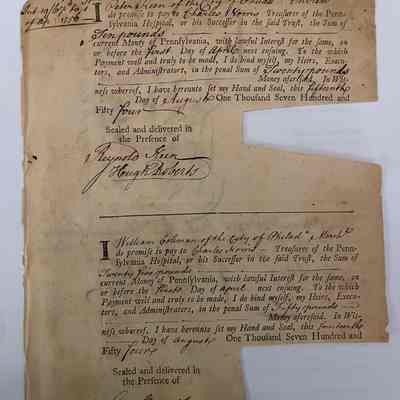 I
do promise to pay to Charles Norris Treasurer of the Penn-
sylvania Hospital, or his Successor in the said Trust, the Sum of
Ten pounds
current Money of Pennsylvania, with lawful Interest for the same, on
or before the first Day of April next ensuing. To the which
Payment well and truly to be made, I do bind myself, my Heirs, Execu-
tors, and Administrators, in the penal Sum of Twenty pounds
Money aforesaid. In Wit-
ness whereof, I have hereunto set my Hand and Seal, this fifteenth
Day of August One Thousand Seven Hundred and
Fifty four
Sealed and delivered in
the Presence of
Reynold Keen
Hugh Roberts
I William Coleman of the City of Philad.ª Merch.t
do promise to pay to Charles Norris Treasurer of the Penn-
sylvania Hospital, or his Successor in the said Trust, the Sum of
Twenty five pounds
current Money of Pennsylvania, with lawful Interest for the same, on
or before the first Day of April next ensuing. To the which
Payment well and truly to be made, I do bind myself, my Heirs, Execu-
tors, and Administrators, in the penal Sum of Fifty pounds
Money aforesaid. In Wit-
ness whereof, I have hereunto set my Hand and Seal, this
Day of August One Thousand Seven Hundred and
Fifty four
Sealed and delivered in
the Presence of